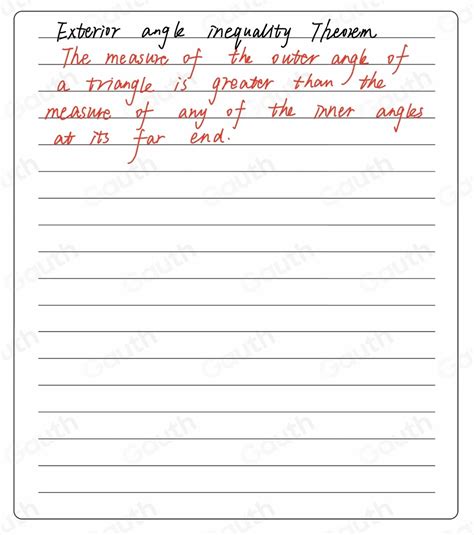 Exterior angle inequality Theorem
The measure of the outer angle of
a triangle is greater than the
measure of any of the inner angles
at its far end.